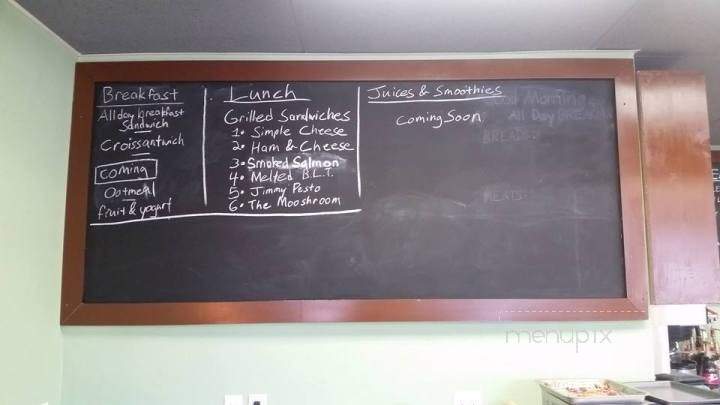 Breakfast
All day breakfast
Sandwich
Croissantwich
Coming
Oatmeal
fruit & yogurt
Lunch
Grilled Sandwiches
1. Simple Cheese
2. Ham & Cheese
3. Smoked Salmon
4. Melted B.L.T.
5. Jimmy Pesto
6. The Mooshroom
Juices & Smoothies
Coming Soon
Good Morning
All Day BREAK
BREADS:
MEATS:
menupix